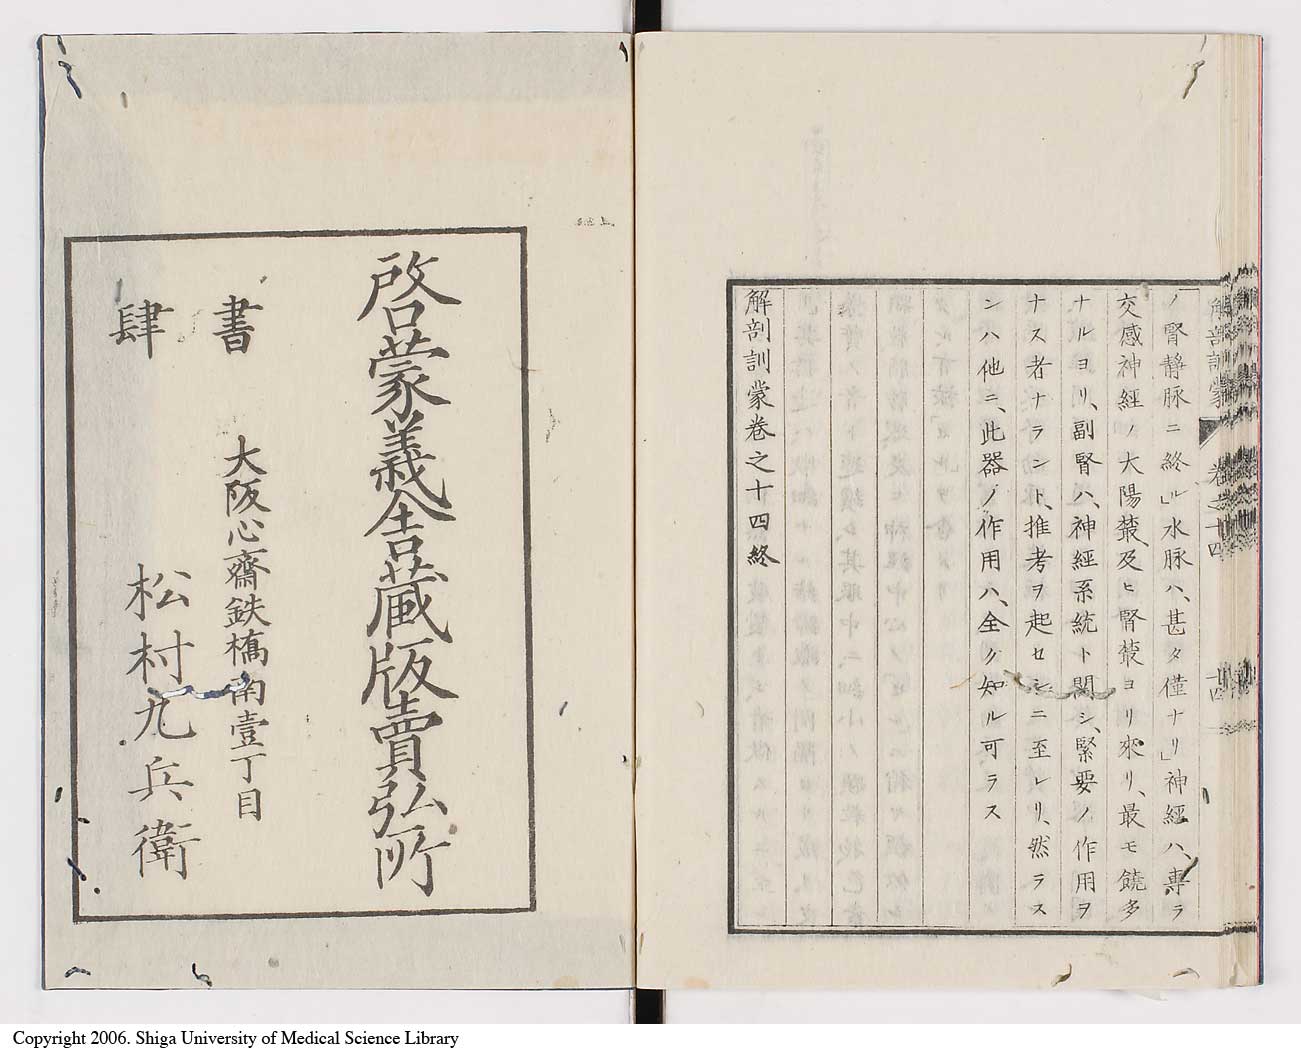 ノ腎靜脉ニ終ル」水脉ハ、甚タ僅ナリ」神經ハ、專ラ
交感神經ノ大陽叢及ヒ腎叢ヨリ來リ、最モ饒多
ナルヨリ、副腎ハ、神經系統ト關シ、緊要ノ作用ヲ
ナス者ナラント、推考ヲ起セシニ至レリ、然ラス
ンハ他ニ、此器ノ作用ハ、全ク知ル可ラス
解剖訓蒙卷之十四終
解剖訓蒙 卷之十四 十四
啓蒙義舎藏版賣弘所
書肆
大阪心齋鉄橋南壹丁目
松村九兵衛
Copyright 2006. Shiga University of Medical Science Library